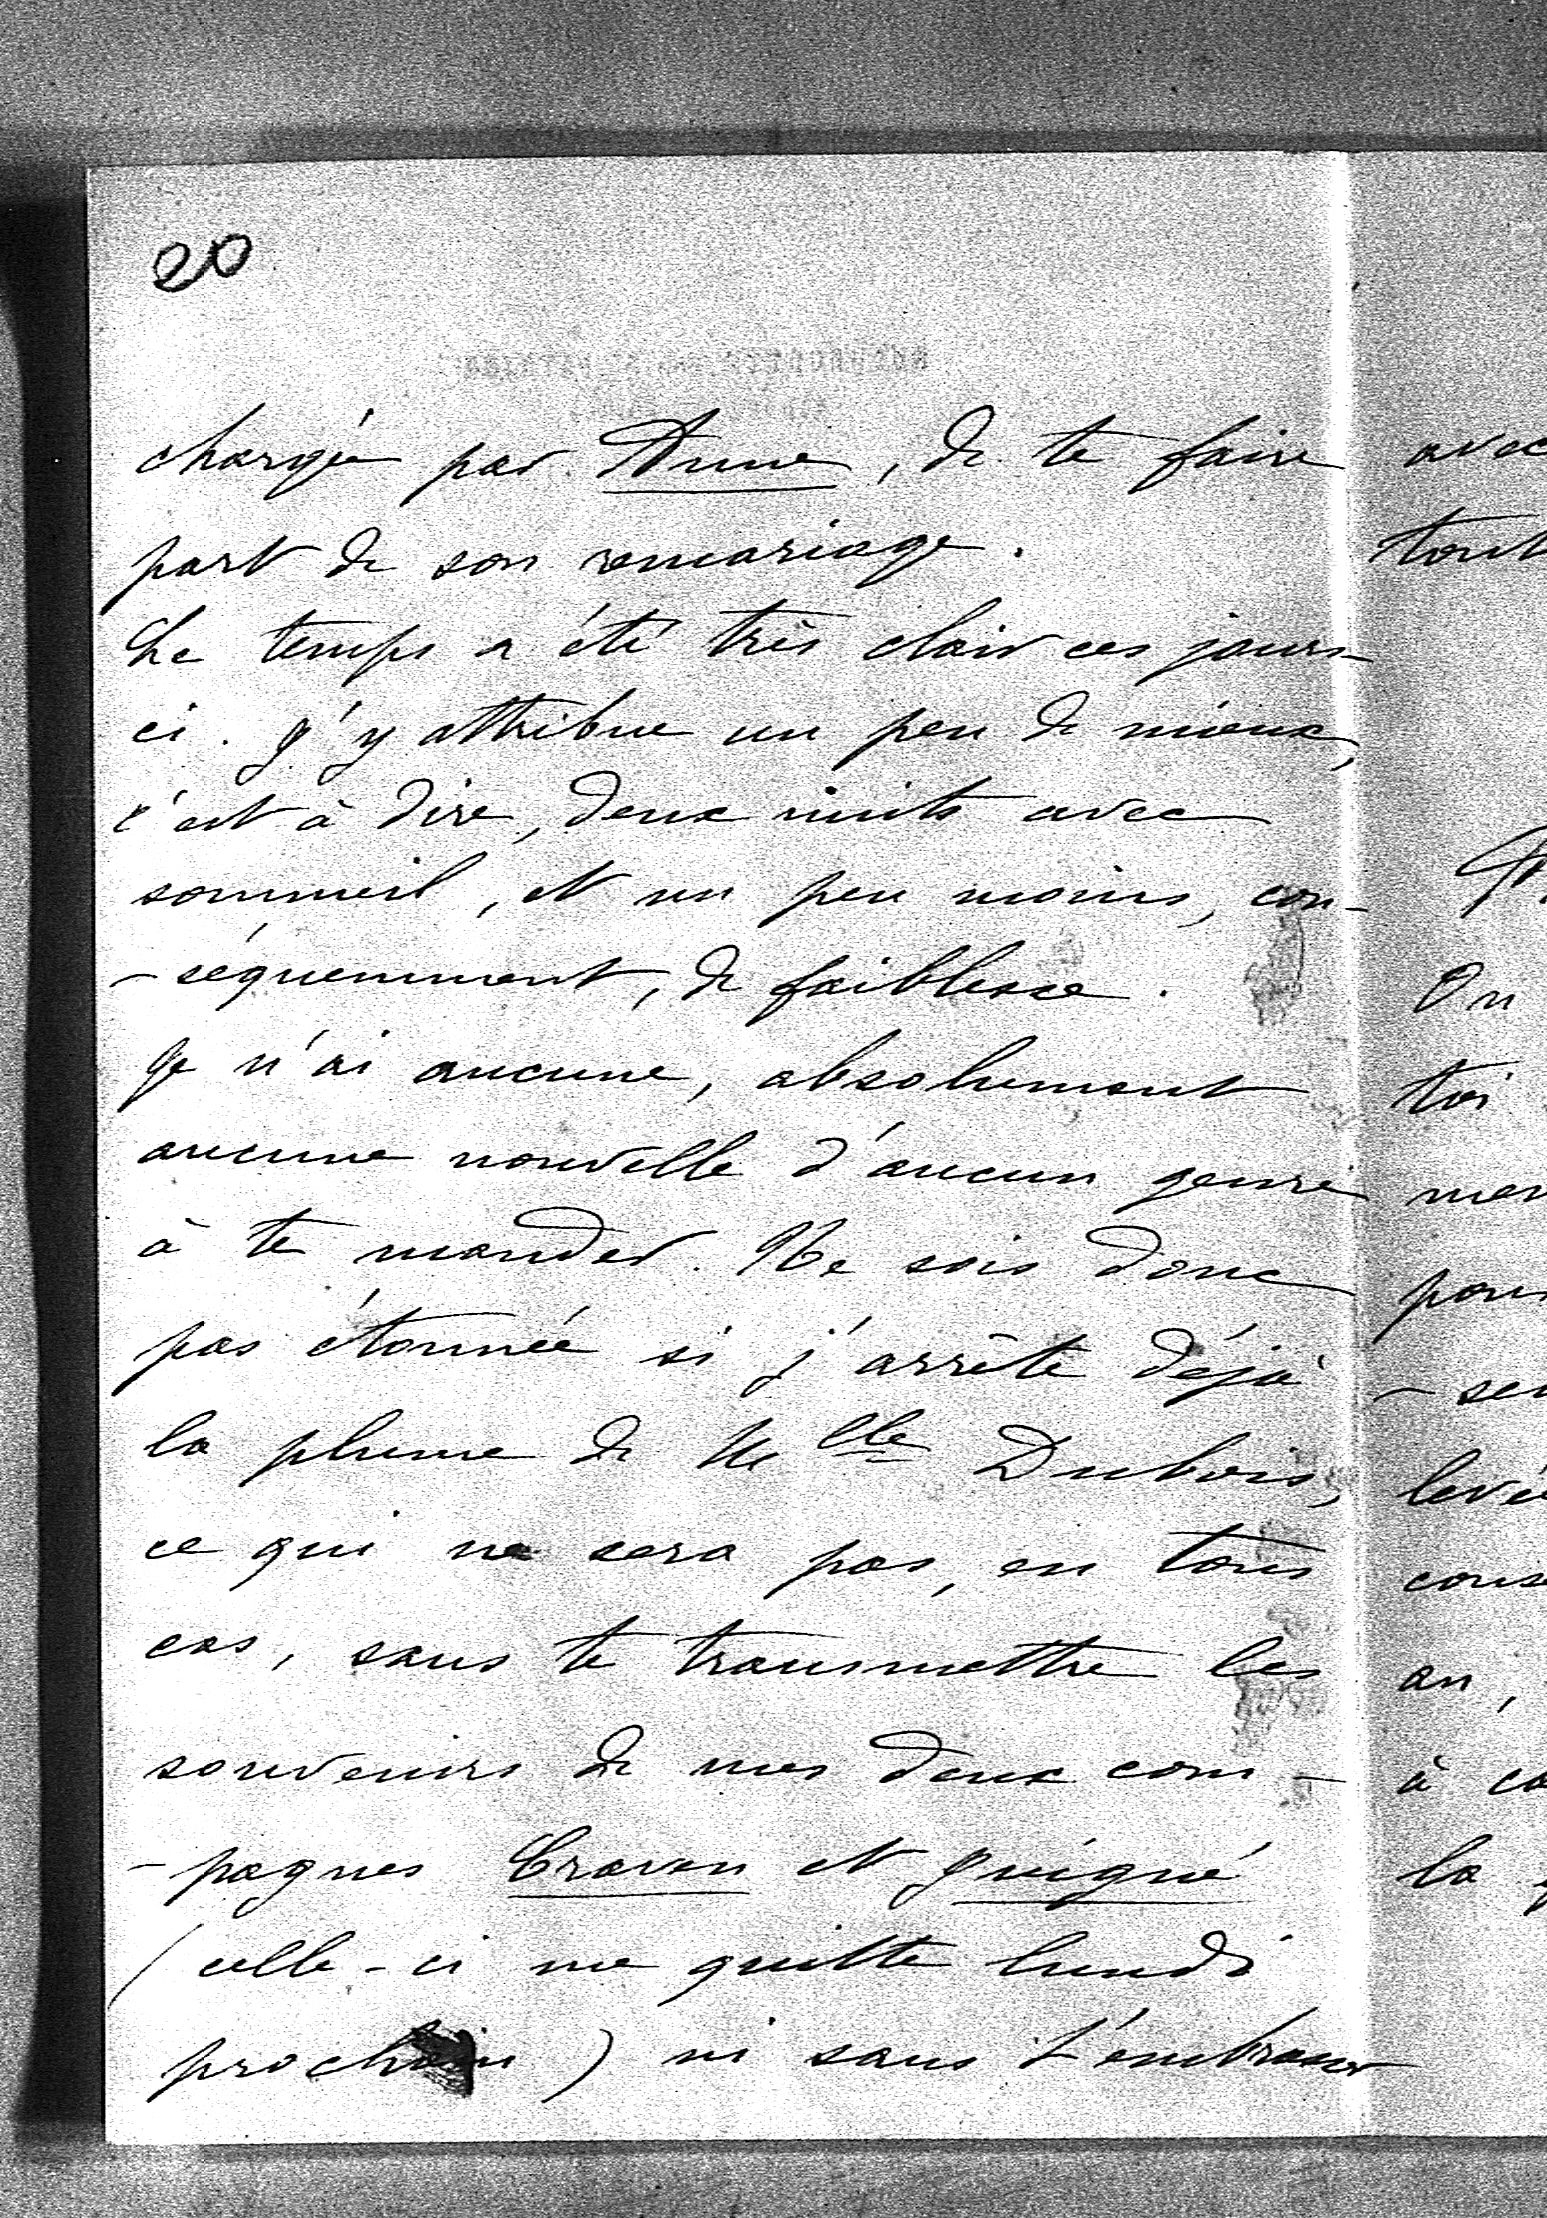 20
chargée par Anne, de te faire
part de son remariage.
Le temps a été très clair ces jours-
ci. J'y attribue un peu de mieux,
c'est à dire, deux nuits avec
sommeil, et un peu moins, con-
-séquemment, de faiblesse.
Je n'ai aucune, absolument
aucune nouvelle d'aucun genre
à te mander. Ne sois donc
pas étonnée si j'arrête déjà
la plume de Mlle Dubois,
ce qui ne sera pas, en tous
cas, sans te transmettre les
souvenirs de mes deux com-
-pagnes Craven et Guigné
(celle-ci me quitte lundi
prochain) ni sans t'embrasser
avec
tout
On
toi
pour
levée
an,
la